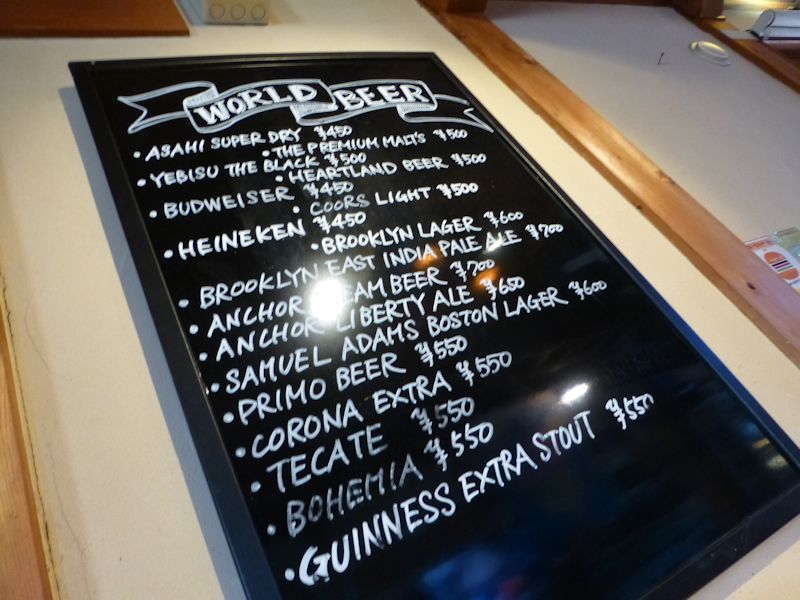 WORLD BEER
• ASAHI SUPER DRY ¥450
• THE PREMIUM MALT'S ¥500
• YEBISU THE BLACK ¥500
• HEARTLAND BEER ¥500
• BUDWEISER ¥450
• COORS LIGHT ¥500
• HEINEKEN ¥450
• BROOKLYN LAGER ¥600
• BROOKLYN EAST INDIA PALE ALE ¥700
• ANCHOR STEAM BEER ¥700
• ANCHOR LIBERTY ALE ¥650
• SAMUEL ADAMS BOSTON LAGER ¥600
• PRIMO BEER ¥550
• CORONA EXTRA ¥550
• TECATE ¥550
• BOHEMIA ¥550
• GUINNESS EXTRA STOUT ¥550